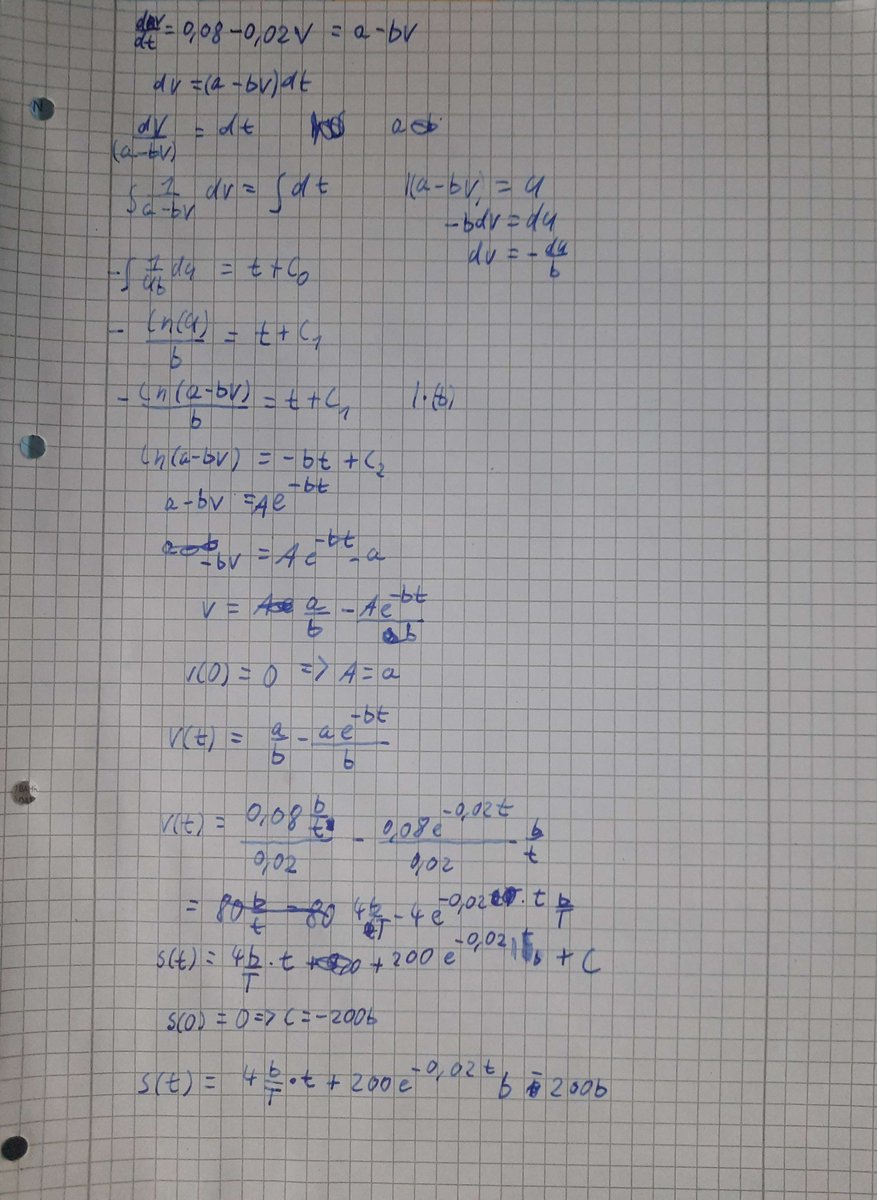 dv/dt = 0,08 - 0,02V = a - bV
dv = (a - bv)dt
dV/(a-bV) = dt
∫ 1/(a-bV) dv = ∫ dt   (a-bV) = u
-bdv = du
dv = -du/b
-∫ 1/(ub) du = t + C₀
- ln(u)/b = t + C₁
- ln(a-bV)/b = t + C₁   |·(b)
ln(a-bV) = -bt + C₂
a - bV = Ae^(-bt)
-bV = Ae^(-bt) - a
V = a/b - Ae^(-bt)/b
V(0) = 0 => A = a
V(t) = a/b - ae^(-bt)/b
V(t) = 0,08 b/t / 0,02 - 0,08e^(-0,02t) / 0,02 · b/t
= 4 b/T - 4e^(-0,02 · t) b/T
s(t) = 4 b/T · t + 200 e^(-0,02t) b + C
s(0) = 0 => C = -200b
s(t) = 4 b/T · t + 200e^(-0,02t) b - 200b